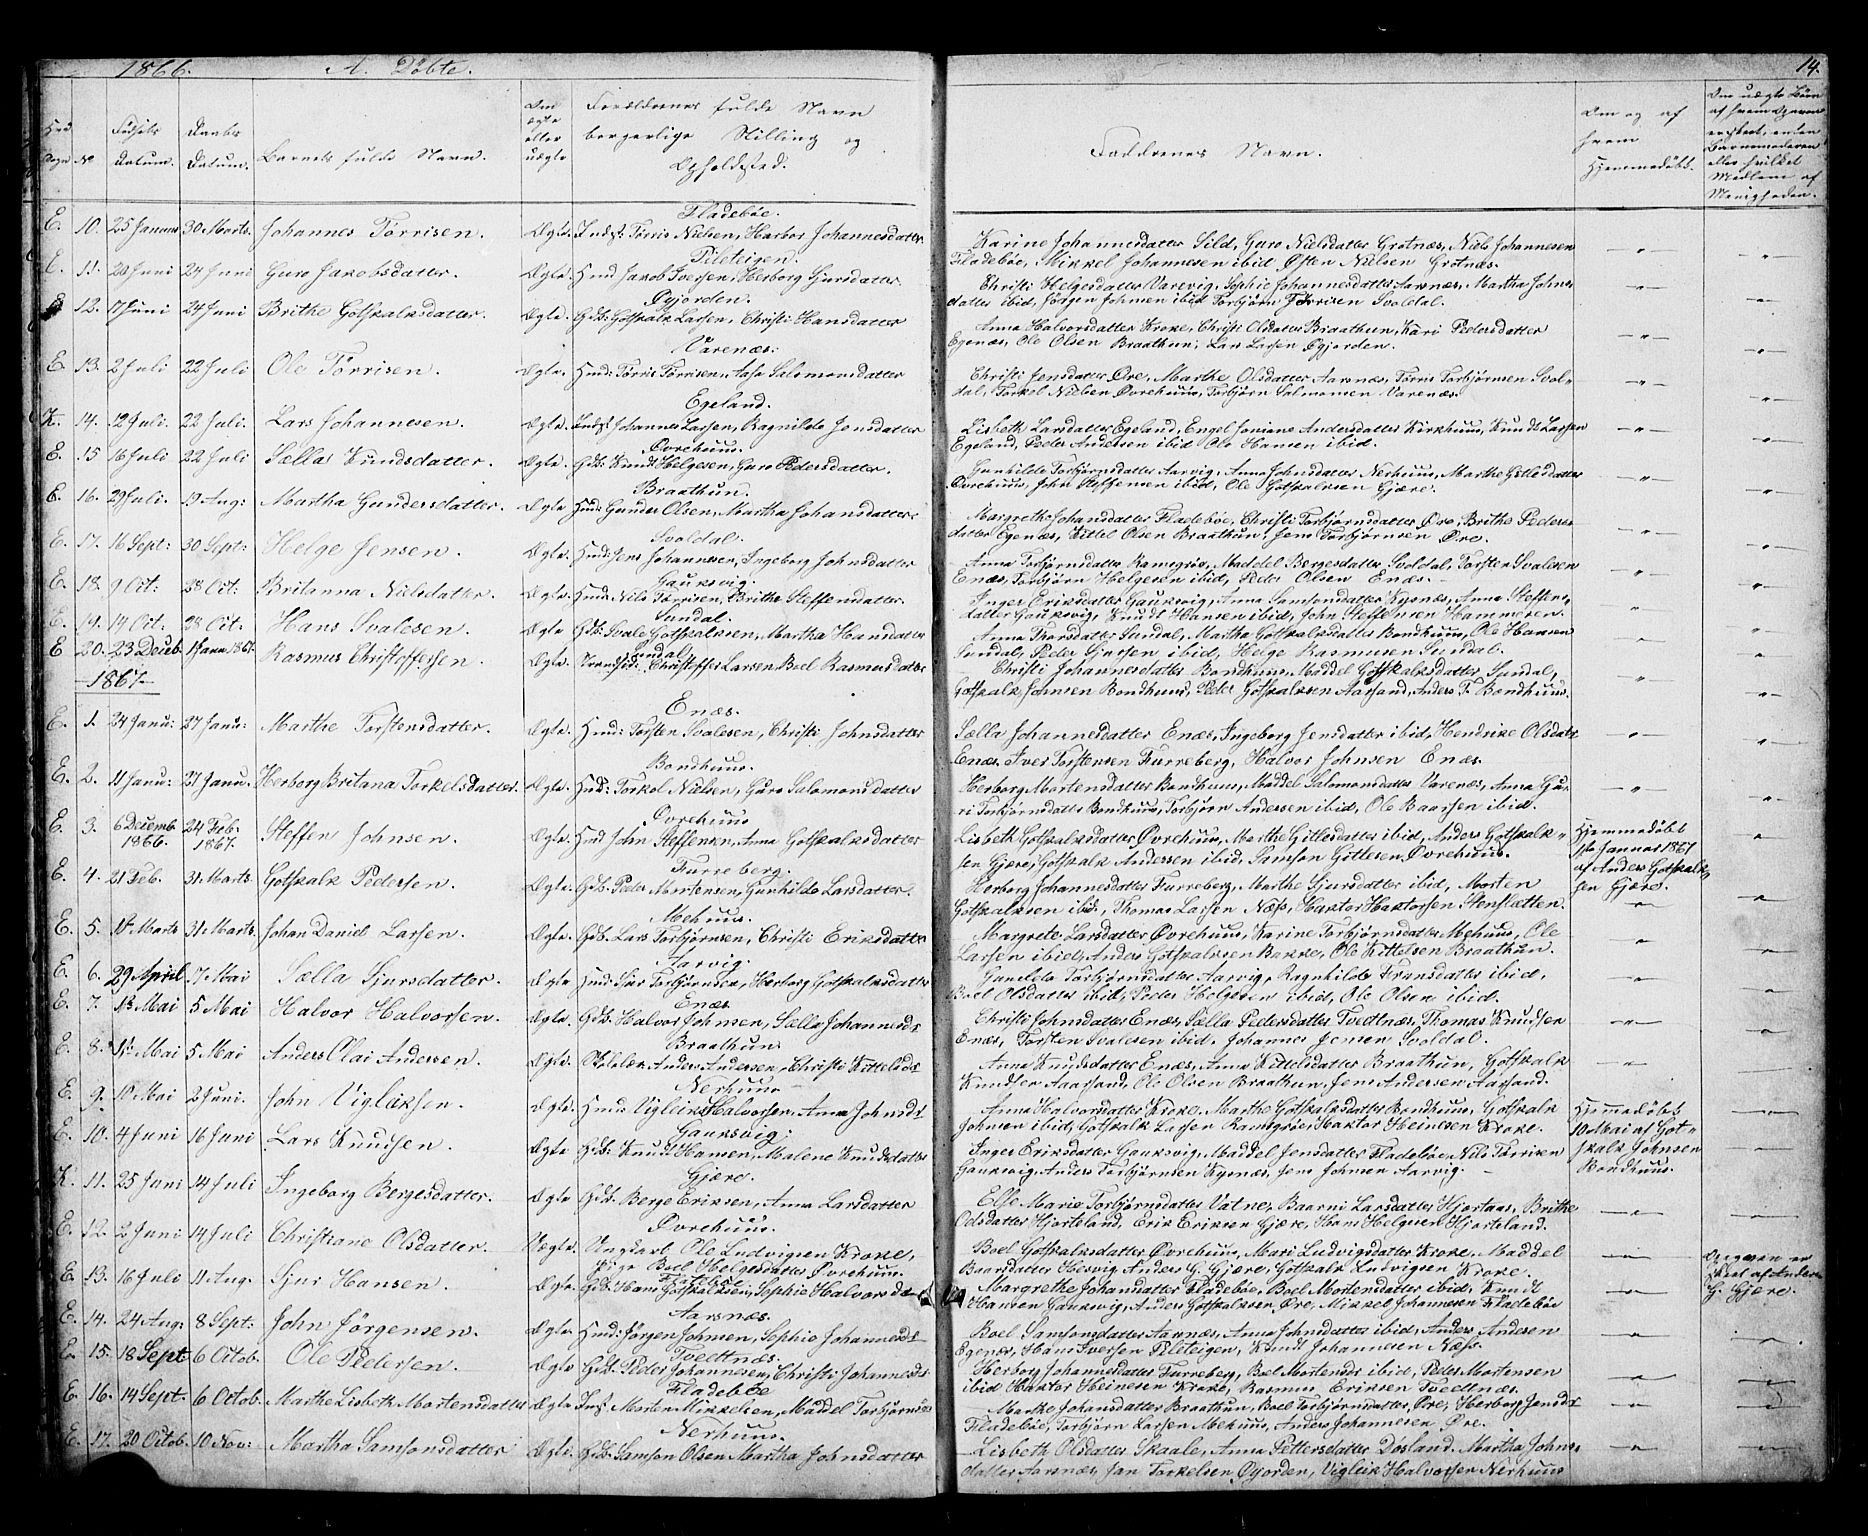 1866. A. Döbte.
14.
Fødsels Datum.
Daabs Datum.
Barnets fulde Navn.
Om ægte eller uægte
Forældrenes fulde Navn borgerlige Stilling og Opholdsted.
Faddrenes Navn.
Om og af hvem Hjemmedøbt.
E. 10. 25 Januar 30 Marts. Johannes Tørrisen. Ægte. Fladebøe. Inds: Tørris Nielsen, Harbor Johannesdatter
Karine Johannesdatter Sild, Guro Nielsdatter Grotnæs, Niels Johannesen
Fladebøe, Mikkel Johannesen ibid Østen Nielsen Grotnæs.
E. 11. 20 Juni 24 Juni Guro Jakobsdatter. Ægte. Pileteigen. Hmd Jakob Iversen, Herborg Sjursdatter.
Christi Helgesdatter Varevig, Sophie Johannesdatter Aarsnæs, Martha Johnes
datter ibid, Jörgen Johnsen ibid Torbjörn Tørrisen Svoldal.
E. 12. 17 Juni 24 Juni Brithe Gotskalksdatter. Ægte. Øyjorden. Gdb: Gotskalk Larsen, Christi Hansdatter
Anna Halvorsdatter Kroke, Christi Olsdatter Braathun, Kari Pedersdatter
Egenæs, Ole Olsen Braathun, Lars Larsen Øyjorden.
E. 13. 2 Juli 22 Juli Ole Tørrisen. Ægte. Varenæs: Hmd: Tørris Tørrisen, Aase Salomonsdatter
Christi Jensdatter Øre, Marthe Olsdatter Aarsnæs, Tørris Torbjörnsen Svol-
dal, Torkel Nielsen Øvrehuus, Torbjörn Salmonsen Varenæs.
K. 14. 12 Juli. 22 Juli. Lars Johannesen. Ægte. Egeland. Inds: Johannes Larsen, Ragnilde Jonsdatter
Lisbeth Larsdatter Egeland, Engel Joniane Andersdatter Kirkhuus, Knudt Larsen
Egeland, Peder Andersen ibid Ole Hansen ibid.
E. 15 16 Juli 22 Juli Sælla Knudsdatter. Ægte. Øvrehuus. Gdb: Knud Helgesen, Guro Pedersdatter.
Gunhilde Torbjörnsdatter Aarvig, Anna Johnsdatter Nerhuus, Marthe Gitlesdatter
Øvrehuus, John Steffensen ibid, Ole Gotskalksen Gjære.
E. 16. 29 Juli. 19 Aug: Martha Gundersdatter. Ægte Braathun. Hmd: Gunder Olsen, Martha Johansdatter.
Margrethe Johansdatter Fladebøe, Christi Torbjörnsdatter Øre, Brithe Peders
datter Egenæs, Kittel Olsen Braathun, Jens Torbjörnsen Øre.
E. 17. 16 Sept: 30 Sept: Helge Jensen. Ægte. Svoldal. Hmd: Jens Johannesen, Ingeborg Johnsdatter
Anna Torbjörnsdatter Ramsgrøe, Maddel Bergesdatter Svoldal, Torsten Svalesen
Enæs, Torbjörn Helgesen ibid, Peder Olsen Enæs.
E. 18. 9 Oct: 28 Oct: Britanna Nielsdatter. Ægte. Gauksvig. Hmd. Nils Tørrisen, Brithe Steffensdatter.
Inger Eriksdatter Gauksvig, Anna Samsonsdatter Kysnæs, Anna Steffens
datter Gauksvig, Knudt Hansen ibid, John Steffensen Hammeren.
E. 19. 19 Oct. 28 Oct. Hans Svalesen. Ægte Sundal. Gdb: Svale Gotskalksen, Martha Hansdatter
Anna Thorsdatter Sundal, Martha Gotskalksdatter Bondhuus, Ole Hansen
Sundal, Peder Sjursen ibid, Helge Rasmusen Sundal.
E 20. 23 Decb. 1 Janu 1867. Rasmus Christoffersen. Ægte. Sundal. Christoffer Larsen Boel Rasmusdatter
Christi Johannesdatter Bondhuus, Maddel Gotskalksdatter Sundal,
Gotskalk Johnsen Bondhuus, Peder Gotskalksen Aarsand, Anders T. Bondhuus.
1867
E. 1. 24 Janu: 27 Janu: Marthe Torstensdatter. Ægte. Enæs. Hmd: Torsten Svalesen, Christi Johnsdatter
Sælla Johannesdatter Enæs, Ingeborg Jensdatter ibid, Hendrike Olsdatt.
Enæs, Iver Torstensen Furreberg, Halvor Johnsen Enæs.
E. 2. 11 Janu: 27 Janu. Herborg Britana Torkelsdatter. Ægte. Bondhuus. Hmd: Torkel Nielsen, Guro Salomonsdatter
Herborg Mortensdatter Bondhuus, Maddel Salomonsdatter Varenæs, Anna Gu-
ri Torbjörnsdatter Bondhuus, Torbjörn Andersen ibid, Ole Baarsen ibid.
E. 3. 6 Decemb. 1866. 24 Feb. 1867. Steffen Johnsen. Ægte. Øvrehuus Hmd John Steffensen, Anna Gotskalksdatter
Lisbeth Gotskalksdatter Øvrehuus, Marthe Gitlesdatter ibid, Anders Gotskalk-
sen Gjære, Gotskalk Andersen ibid, Samson Gittlesen Øvrehuus.
Hjemmedøbt 1ste Januar 1867 af Anders Gotskalksen Gjære.
E. 4. 21 Feb. 31 Marts. Gotskalk Pedersen. Ægte. Furreberg. Gdb. Peder Mortensen, Gunhilde Larsdatter.
Herborg Johannesdatter Furreberg, Marthe Sjursdatter ibid, Morten
Gotskalksen ibid, Thomas Larsen Næss, Haktor Haktorsen Stenslætten.
E. 5. 10 Marts 31 Marts. Johan Daniel Larsen. Ægte. Mehuus. Gdb. Lars Torbjörnsen, Christi Eriksdatter
Margrete Larsdatter Øvrehuus, Karine Torbjörnsdatter Mehuus, Ole
Larsen ibid, Anders Gotskalksen Bakke, Ole Kittelsen Braathun.
E. 6. 29 April. 7 Mai Sælla Sjursdatter. Ægte Aarvig. Hmd: Sjur Torbjörnsen, Herborg Gotskalksdatter
Gunilde Torbjörnsdatter Aarvig, Ragnhilde Fransdatter ibid,
Boel Olsdatter ibid, Peder Helgesen ibid, Ole Olsen ibid.
E. 7. 1st Mai 5 Mai Halvor Halvorsen. Ægte. Enæs Gdb. Halvor Johnsen, Sælla Johannesdt
Christi Johnsdatter Enæs, Sælla Pedersdatter Tvedtnæs, Thomas Knudsen
Enæs, Torsten Svalesen ibid. Johannes Jensen Svoldal.
E. 8. 1st Mai 5 Mai Anders Olai Andersen. Ægte. Braathun. Anders Andersen, Christi Kittelsdt
Anna Knudsdatter Enæs, Anna Kittelsdatter Braathun, Gotskalk
Knudsen Aarsand, Ole Olsen Braathun, Jens Andersen Aarsand.
E. 9. 10 Mai 2 Juni. John Vigleiksen. Ægte. Nerhuus Hmd: Vigleik Halvorsen, Anna Johnsdt
Anna Halvorsdatter Kroke, Marthe Gotskalksdatter Bondhuus, Gotskalk
Johnsen ibid, Gotskalk Larsen Ramsgrøe, Haktor Heinesen Kroke.
Hjemmedøbt 10 Mai af Gotskalk Johnsen Bondhuus.
E. 10. 4 Juni 16 Juni Lars Knudsen. Ægte Gauksvig: Gdb: Knud Hansen, Malene Knudsdatter
Inger Eriksdatter Gauksvig, Maddel Jensdatter Fladebøe, Nils Tørrisen
Gauksvig, Anders Torbjörnsen Kysnæs, Jens Johnsen Aarvig.
K. 11. 25 Juni 14 Juli Ingeborg Bergesdatter. Ægte Gjære. Gdb: Berge Eriksen, Anna Larsdatter
Else Marie Torbjörnsdatter Vatne, Baarni Larsdatter Hjortaas, Brithe
Odsdatter Hjorteland, Erik Eriksen Gjære, Hans Helgesen Hjorteland.
E. 12. 2 Juni 14 Juli Christiane Olsdatter. Uægte. Øvrehuus. Ungkarl Ole Ludvigsen Kroke, Pige Boel Helgesdatter Øvrehuus.
Boel Gotskalksdatter Øvrehuus, Mari Ludvigsdatter Kroke, Maddel
Baarsdatter Hesvig Anders G. Gjære, Gotskalk Ludvigsen Kroke.
Opgaven er skeet af Anders G. Gjære.
E. 13. 16 Juli 11 Aug. Sjur Hansen. Ægte. Gdb: Hans Gotskalksen, Sophie Halvorsda
Margrethe Johansdatter Fladebøe, Boel Mortensdatter ibid, Knudt
Hansen Gauksvig, Anders Gotskalksen Øre, Mikkel Johannesen Fladebøe
E. 14. 24 Aug: 8 Sept: John Jørgensen. Ægte. Aarsnæs. Hmd: Jørgen Johnsen, Sophie Johannesdt
Boel Samsonsdatter Aarsnæs, Anna Johnsdatter ibid, Anders Andersen
Egenæs, Hans Iversen Pileteigen, Knudt Johannesen Næss.
E. 15. 18 Sept: 6 Octob. Ole Pedersen. Ægte. Tvedtnæs. Gdb. Peder Johannesen, Christi Johannesdt
Herborg Johannsdatter Furreberg, Boel Mortensdt ibid, Peder Mortensen
ibid Haktor Heinesen Kroke, Rasmus Eriksen Tvedtnæs.
E. 16. 14 Sept. 6 Octob. Marthe Lisbeth Mortensdatter Ægte Fladebøe Ins: Morten Mikkelsen, Maddel Torbjörnsdt
Marthe Johansdatter Braathun, Boel Torbjörnsdatter, Øre, Herborg Jensdt
Fladebøe, Torbjörn Larsen Mehuus, Anders Johannesen Øre.
E. 17. 20 Octob. 10 Nov: Martha Samsonsdatter Ægte. Nerhuus. Gdb: Samson Olsen Martha Johnsdatter
Lisbeth Olsdatter Skaale, Anna Pettersdatter Døsland, Martha Johns-
datter Aarsnæs, Jan Torkelsen Øyorden, Vigleik Halvorsen Nerhuus